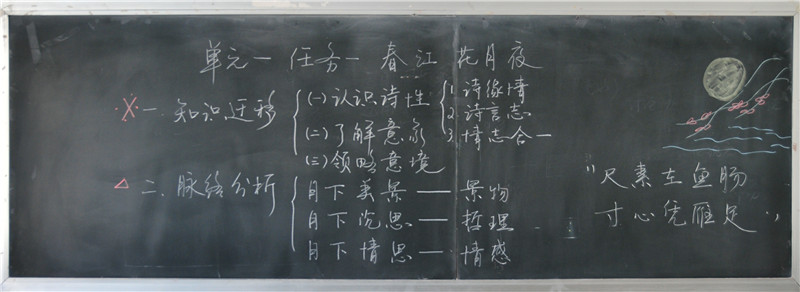 单元一 任务一 春江花月夜
※一、知识迁移
(一)认识诗性
1 诗缘情
2. 诗言志
3. 情志合一
(二)了解意象
(三)领略意境
△二、脉络分析
月下美景——景物
月下沉思——哲理
月下情思——情感
"尺素在鱼肠
寸心凭雁足.,